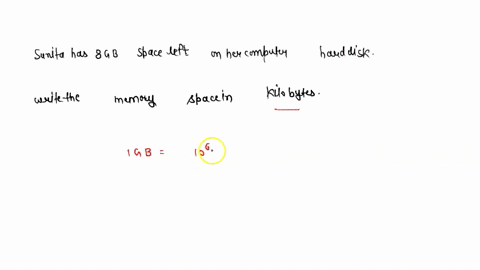 Sunita has 8GB space left on her computer hard disk.
write the memory space in kilobytes.
1GB = 10⁶.